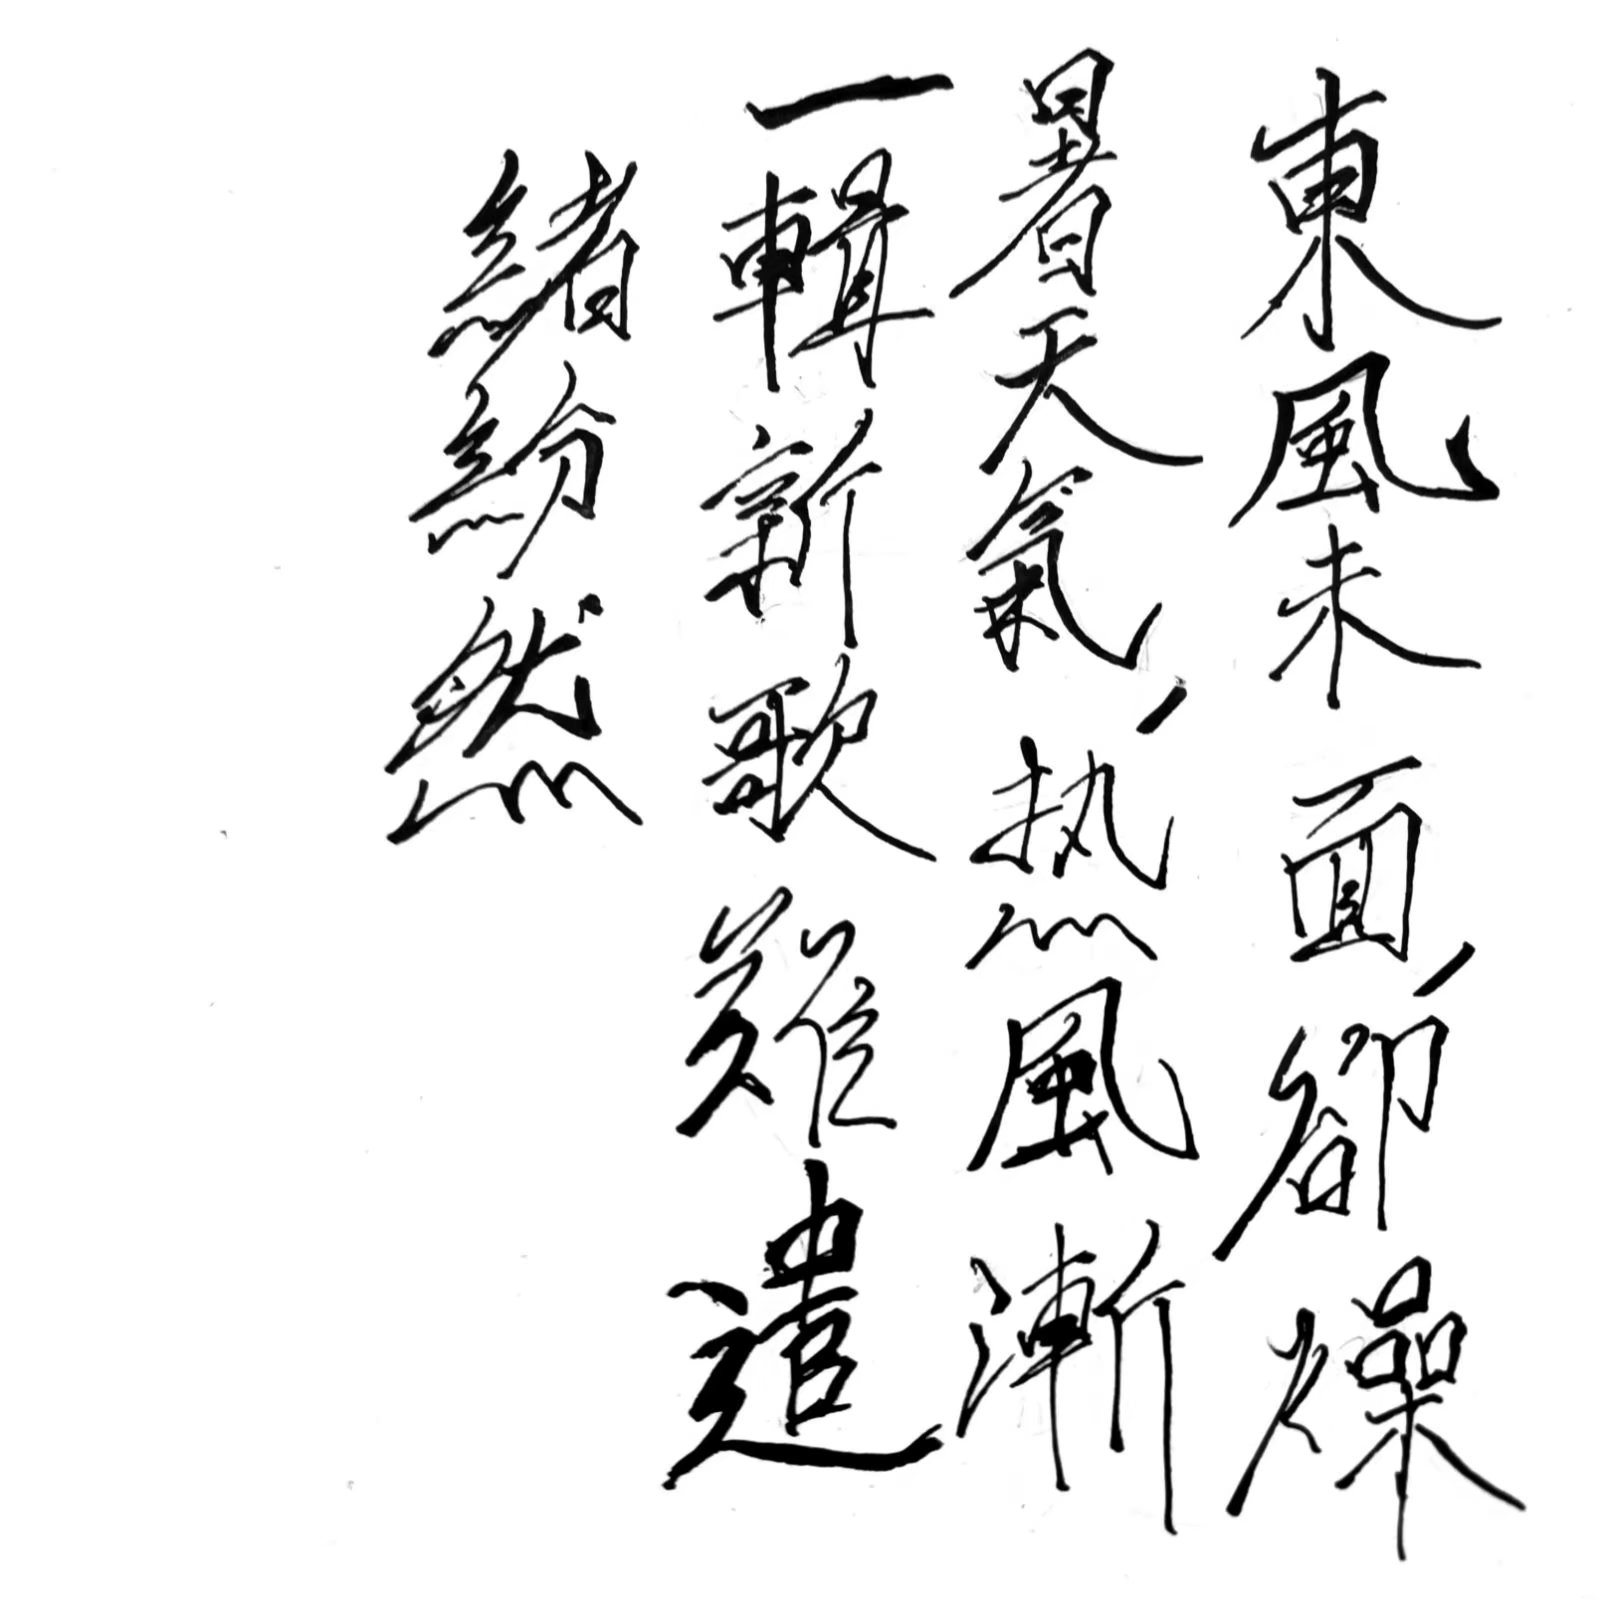 東風未面，卻燥
暑天氣，熱風漸
一輯新歌難遣
緒紛然